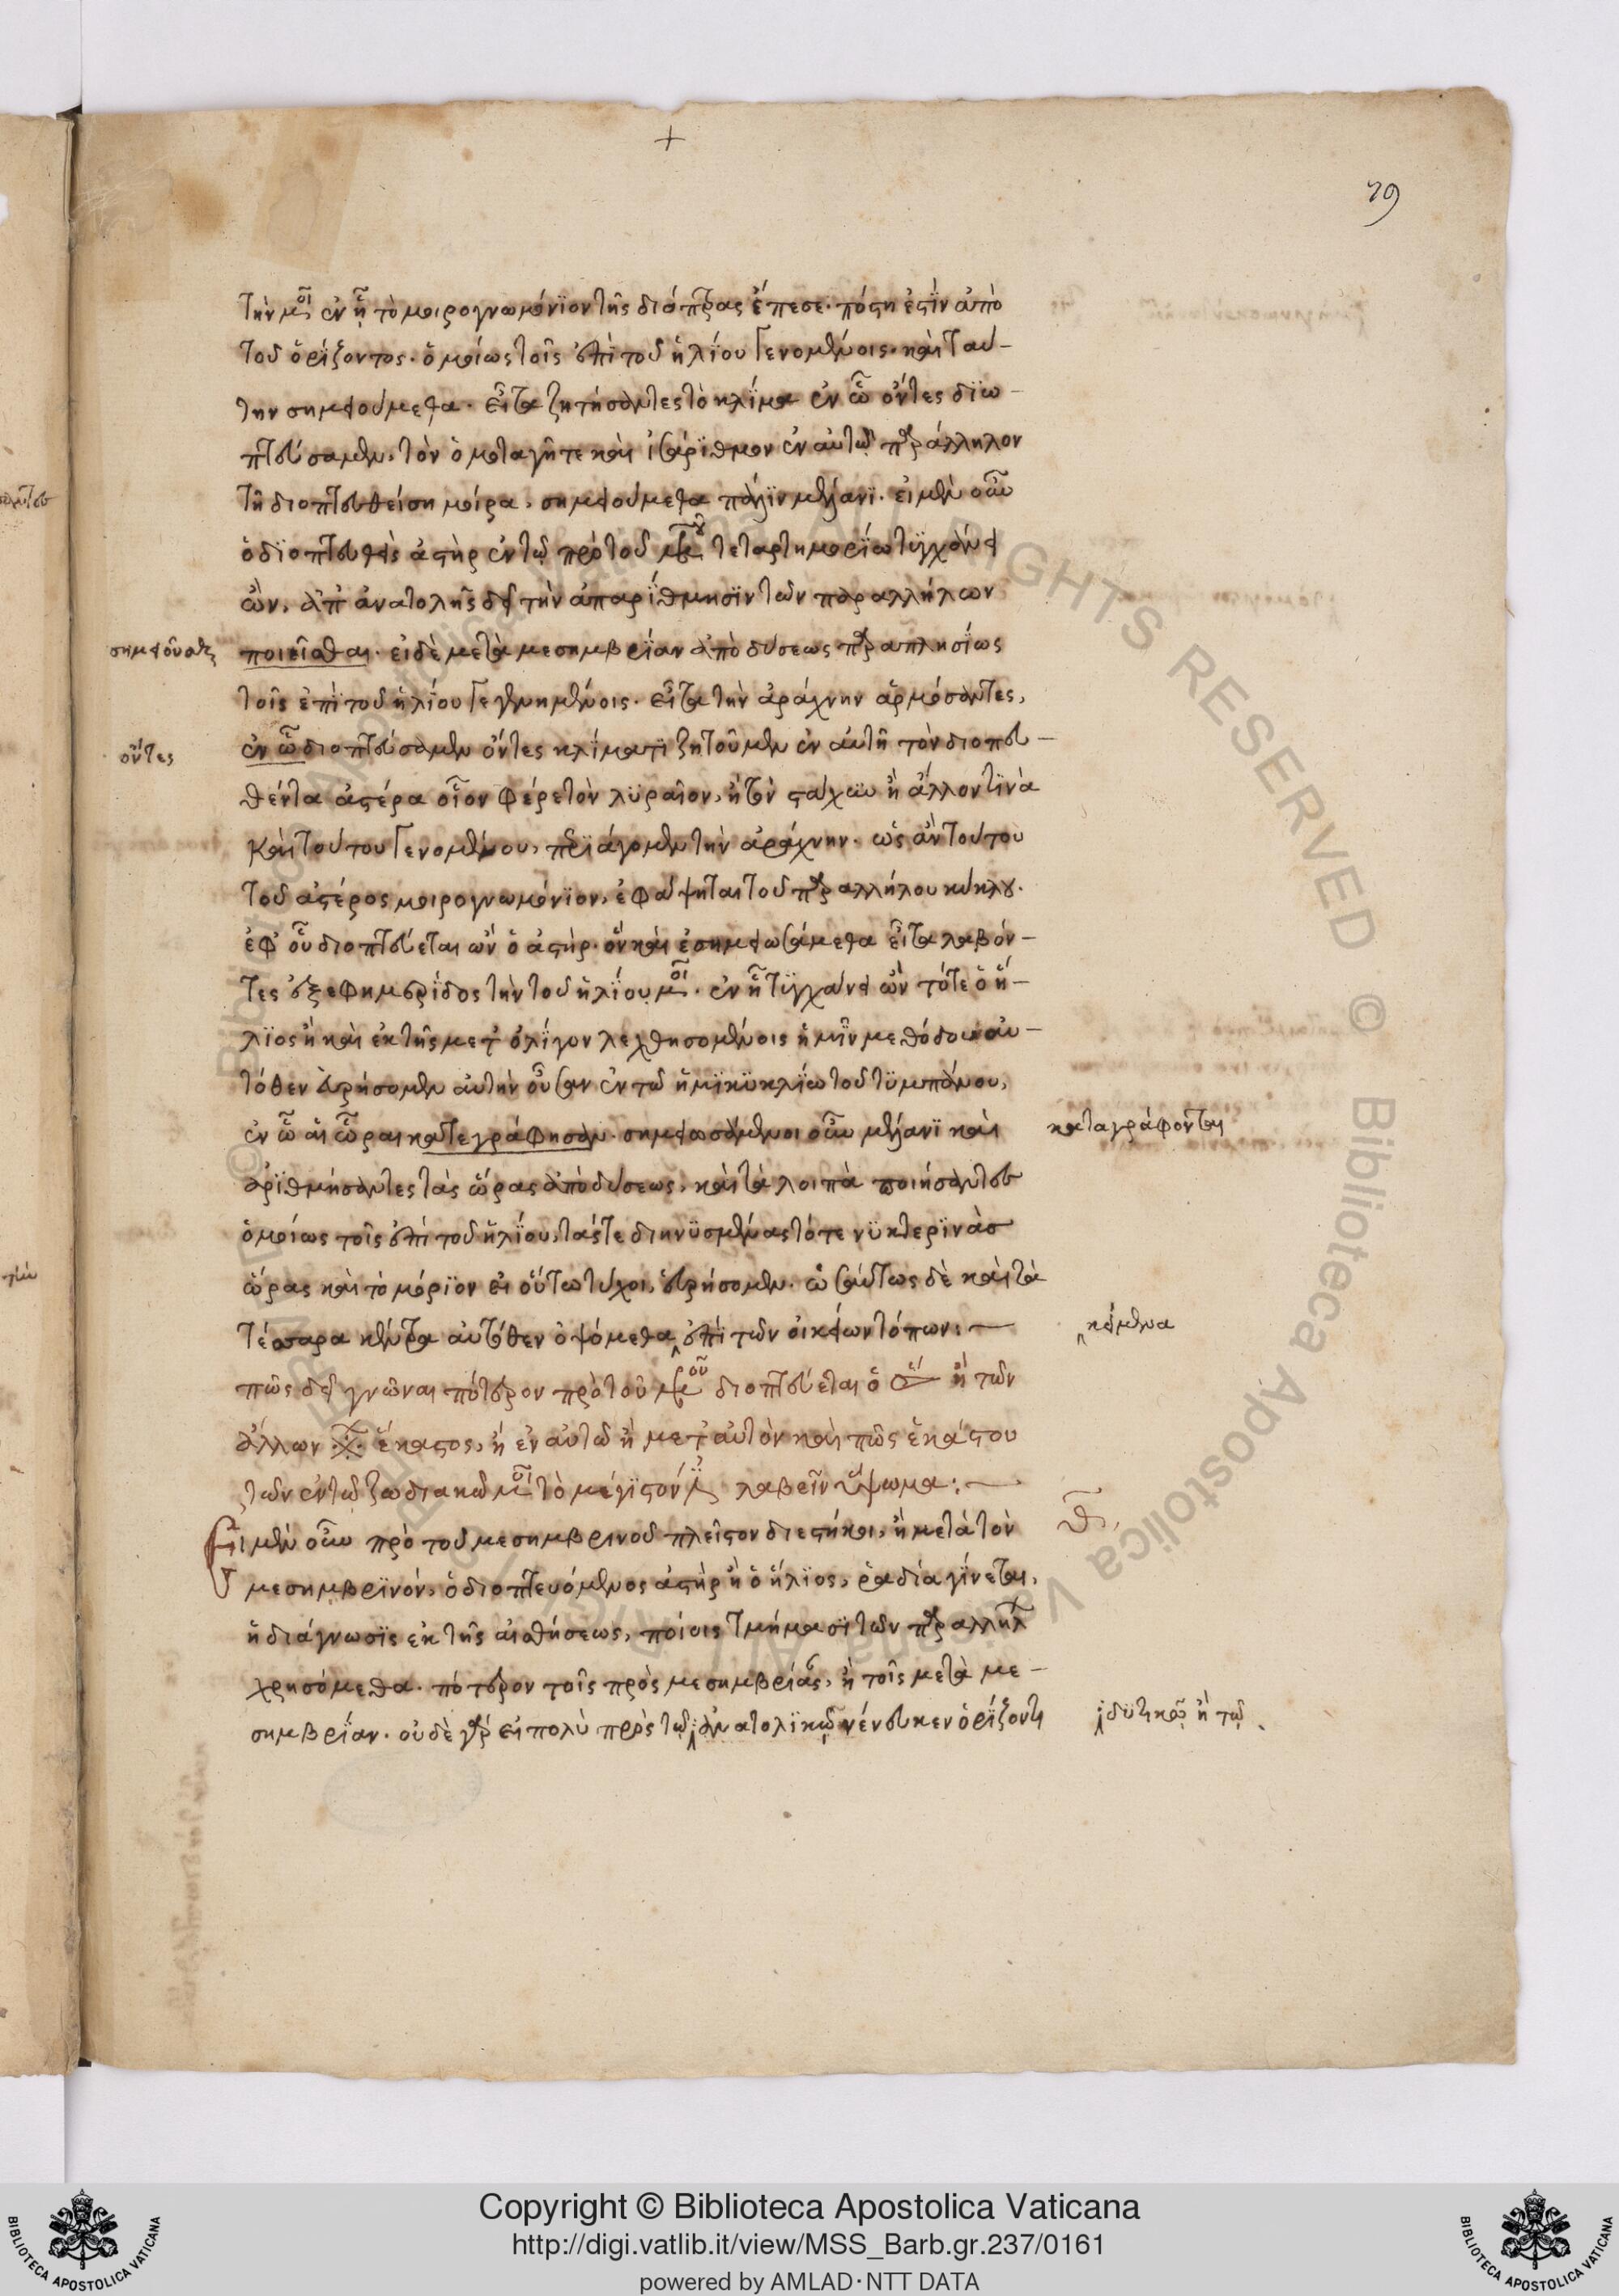 +
79
τὴν μοῖ ἐν ᾗ τὸ μοιρογνωμόνϊον τῆς διόπτρας ἔπεσε· πόση ἐστὶν ἀπὸ
τοῦ ὁρίζοντος· ὁμοίως τοῖς ἐπὶ τοῦ ἡλίου γενομένοις· καὶ ταύ-
την σημειούμεθα· εἶτα ζητήσαντες τὸ κλίμα ἐν ᾧ ὄντες διω-
πτεύσαμεν, τὸν ὁμοταγῆ τε καὶ ἰσάριθμον ἐν αὐτῷ παράλληλον
τῇ διοπτευθείση μοίρα, σημειούμεθα πάλιν μέλανι. εἰ μὲν οὖν
ὁ διοπτευθεὶς ἀστὴρ ἐν τῷ πρὸ τοῦ τεταρτημορίω τυγχάνει
ὢν, ἀπ' ἀνατολῆς δεῖ τὴν ἀπαρίθμησιν τῶν παραλλήλων
σημειοῦσθαι
ποιεῖσθαι. εἰ δὲ μετὰ μεσημβρίαν ἀπὸ δύσεως παραπλησίως
τοῖς ἐπὶ τοῦ ἡλίου γεγενημένοις. εἶτα τὴν ἀράχνην ἁρμόσαντες,
ὄντες
ἐν ᾧ διοπτεύσαμεν ὄντες κλίματι ζητοῦμεν ἐν αὐτῇ τὸν διοπτευ-
θέντα ἀστέρα οἷον φέρε τὸν λυραῖον, ἢ τὸν στάχυν ἢ ἄλλον τινὰ
καὶ τούτου γενομένου, περιάγομεν τὴν ἀράχνην. ὡς ἂν τούτου
τοῦ ἀστέρος μοιρογνωμόνιον, ἐφάψηται τοῦ παραλλήλου κύκλου.
ἐφ' οὗ διοπτεύεται ὢν ὁ ἀστὴρ. ὃν καὶ ἐσημειωσάμεθα εἶτα λαβόν-
τες ἐξ ἐφημερίδος τὴν τοῦ ἡλίου μοῖ. ἐν ᾗ τυγχάνει ὢν τότε ὁ ἥ-
λιος ἢ καὶ ἐκ τῆς μετ' ὀλίγον λεχθησομένοις ἡμῖν μεθόδου αὐ-
τόθεν εὑρήσομεν αὐτὴν οὖσαν ἐν τῷ ἡμικυκλίω τοῦ τυμπάνου,
ἐν ᾧ αἱ ὧραι κατεγράφησαν. σημειωσάμενοι οὖν μέλανι καὶ
καταγράφονται
ἀριθμήσαντες τὰς ὥρας ἀπὸ δύσεως, καὶ τὰ λοιπὰ ποιήσαντες
ὁμοίως τοῖς ἐπὶ τοῦ ἡλίου, τάς τε διηνυσμένας τότε νυκτερινὰς
ὥρας καὶ τὸ μόριον εἰ οὕτω τύχοι, εὑρήσομεν. ὡσαύτως δὲ καὶ τὰ
τέσσαρα κέντρα αὐτόθεν ὀψόμεθα ἐπὶ τῶν οἰκείων τόπων:
κείμενα
πῶς δεῖ γνῶναι πότερον πρὸ τοῦ διοπτεύεται ὁ ἢ τῶν
ἄλλων ἕκαστος, ἢ ἐν αὐτῷ ἢ μετ' αὐτὸν καὶ πῶς ἑκάστου
τῶν ἐν τῷ ζωδιακῷ τὸ μέγιστον λαβεῖν ὕψωμα:
Εἰ μὲν οὖν πρὸ τοῦ μεσημβρινοῦ πλεῖστον διεστήκοι, ἢ μετὰ τὸν
θ
μεσημβρινὸν, ὁ διοπτευόμενος ἀστὴρ ἢ ὁ ἥλιος, ῥαδία γίνεται,
ἡ διάγνωσις ἐκ τῆς αἰσθήσεως, ποίοις τμήμασι τῶν παραλλήλ
χρησόμεθα. πότερον τοῖς πρὸς μεσημβρίας, ἢ τοῖς μετὰ με-
σημβρίαν. οὐδὲ γὰρ εἰ πολὺ πρὸς τῷ ἀνατολικῷ νένευκεν ὁρίζοντι
δυτικῷ ἢ τῷ
Copyright © Biblioteca Apostolica Vaticana
http://digi.vatlib.it/view/MSS_Barb.gr.237/0161
powered by AMLAD·NTT DATA